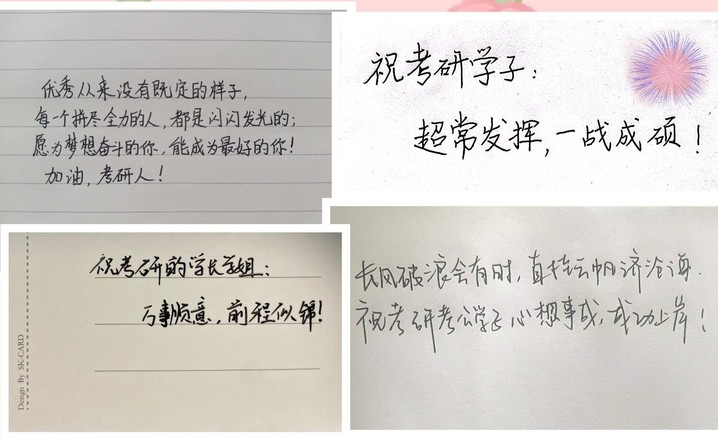 优秀从来没有既定的样子,
每个拼尽全力的人,都是闪闪发光的;
愿为梦想奋斗的你,能成为最好的你!
加油,考研人!
祝考研学子:
超常发挥,一战成硕!
祝考研的学长学姐:
万事顺意,前程似锦!
Design By SK-CARD
长风破浪会有时,直挂云帆济沧海.
祝考研考公学子心想事成,成功上岸!